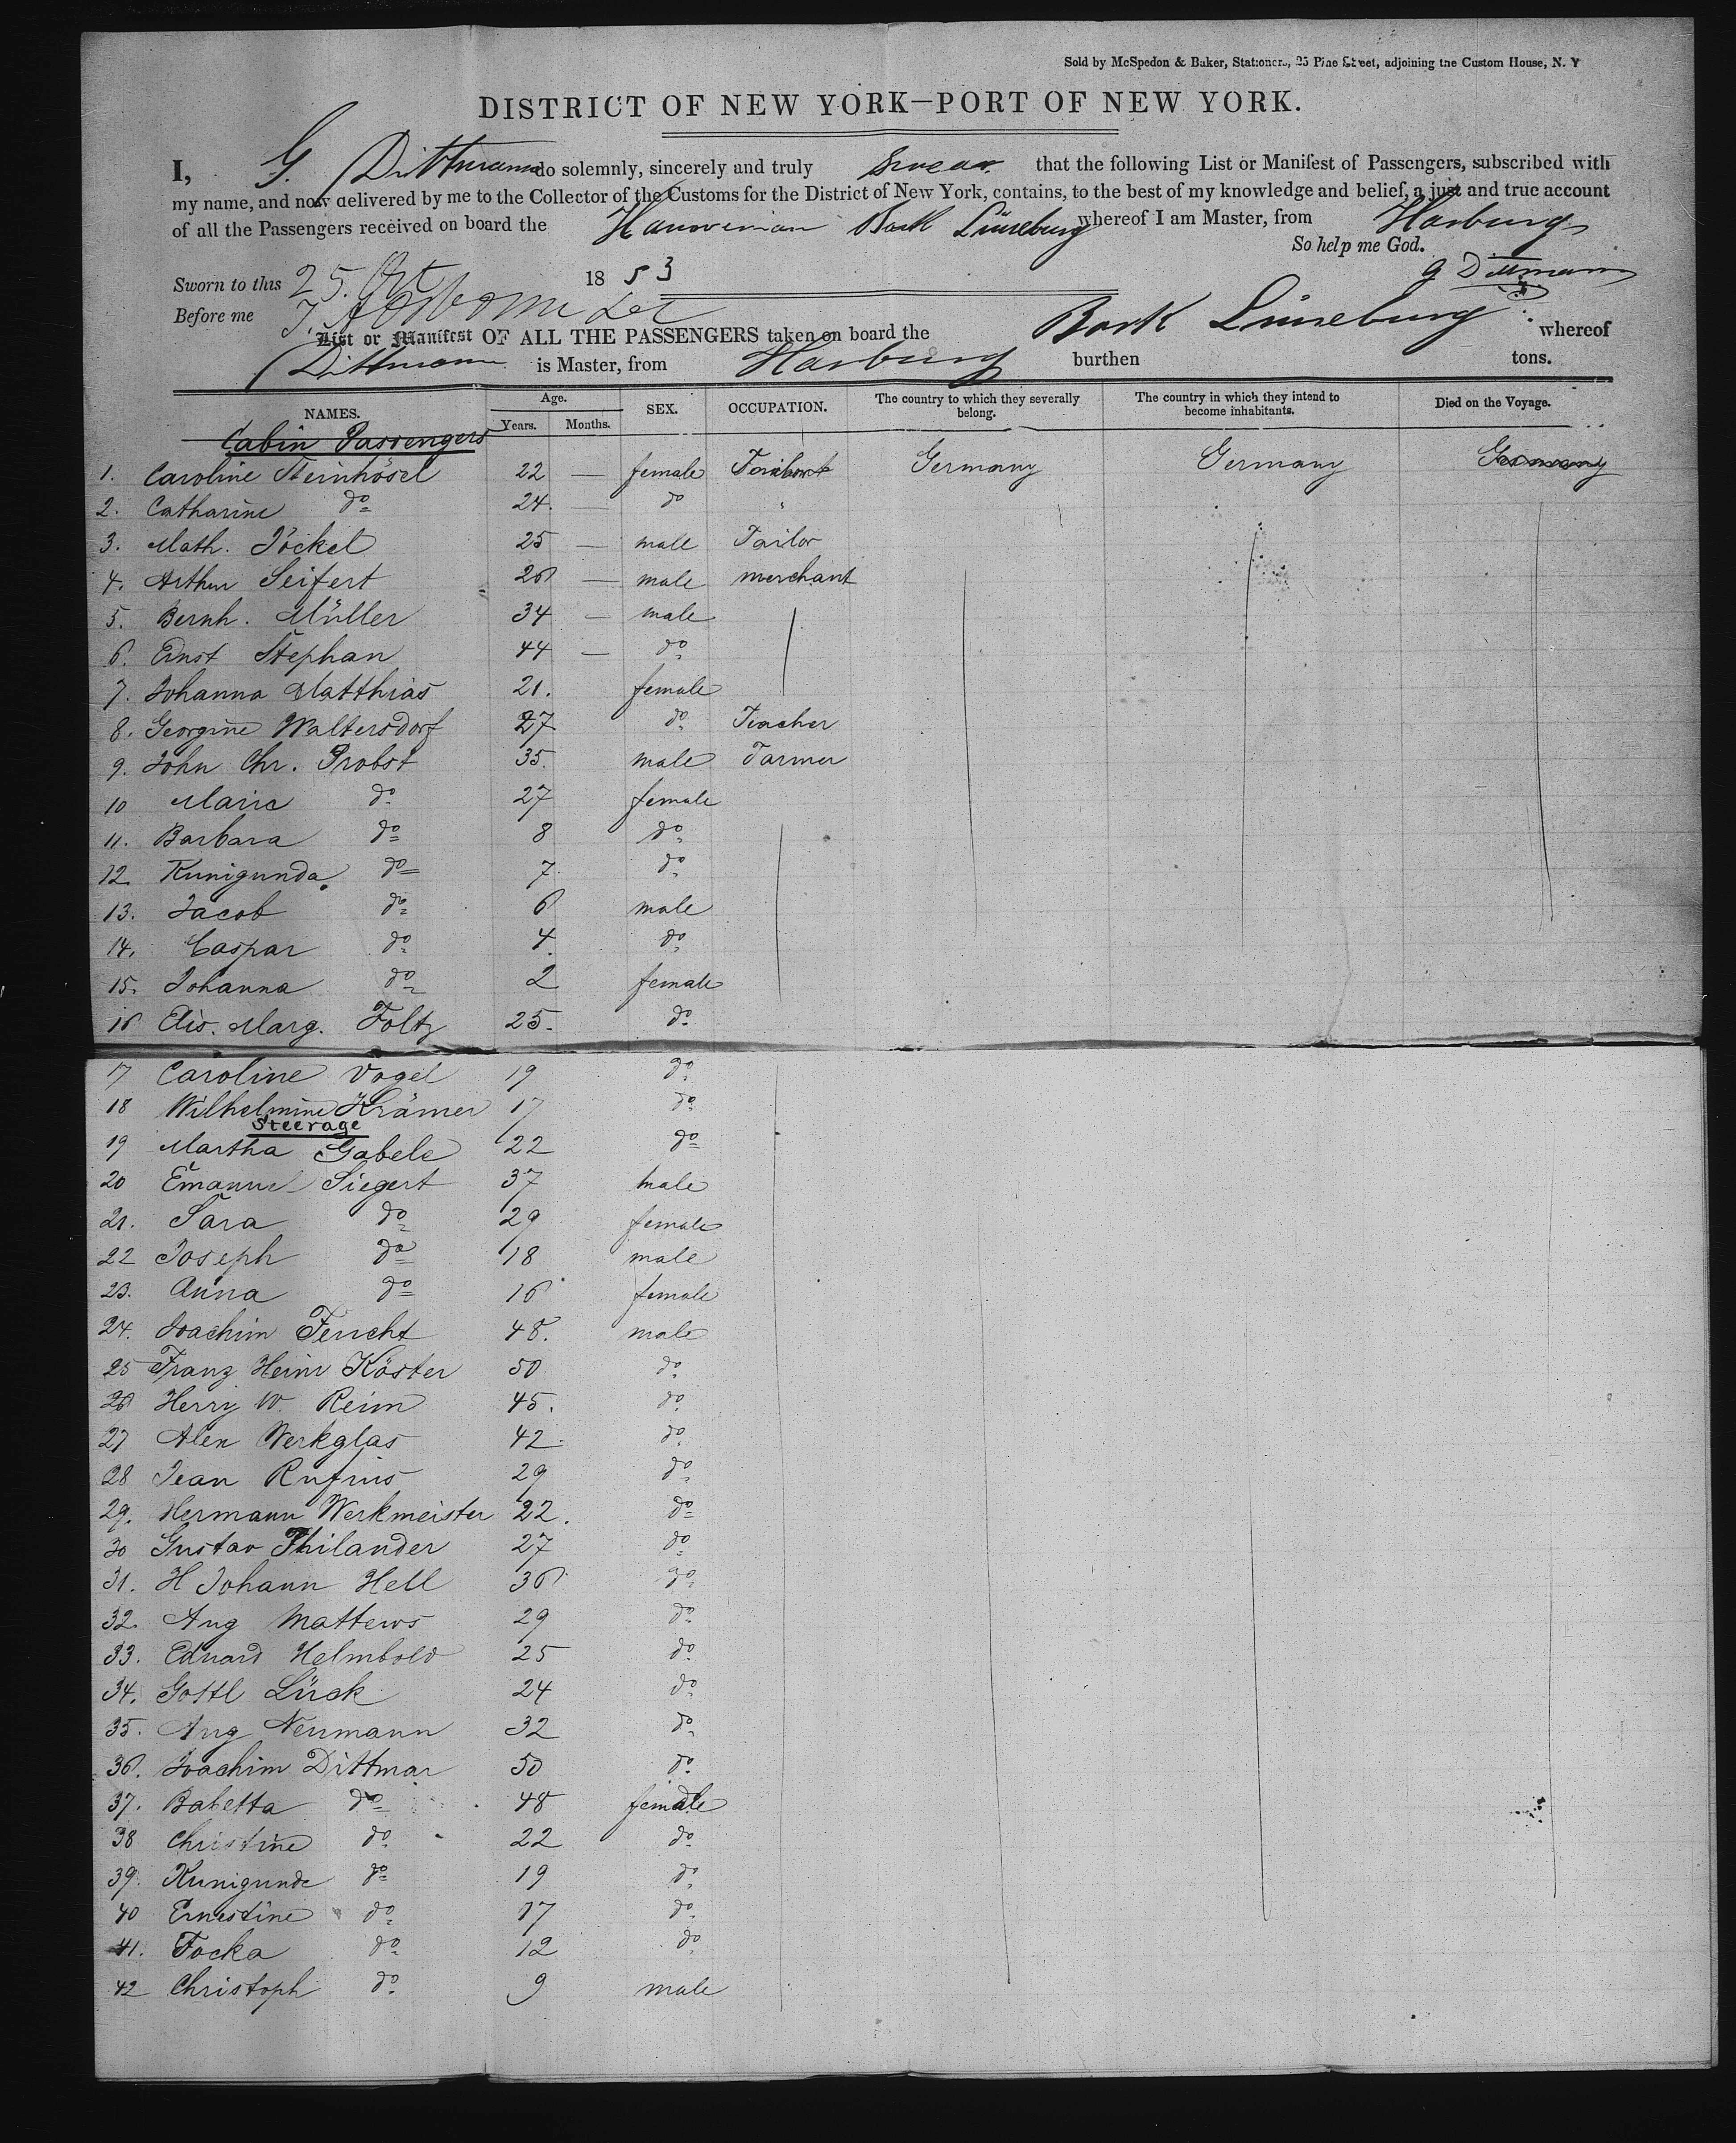 Sold by McSpedon & Baker, Stationers, 25 Pine Street, adjoining the Custom House, N. Y
DISTRICT OF NEW YORK—PORT OF NEW YORK.
I, G. Dittmann do solemnly, sincerely and truly swear that the following List or Manifest of Passengers, subscribed with
my name, and now delivered by me to the Collector of the Customs for the District of New York, contains, to the best of my knowledge and belief, a just and true account
of all the Passengers received on board the Hannoverian Bark Lüneburg whereof I am Master, from Harburg
So help me God.
Sworn to this 25. Oct 1853 G Dittmann
Before me
List or Manifest OF ALL THE PASSENGERS taken on board the Bark Lüneburg whereof
Dittmann is Master, from Harburg burthen tons.
NAMES. Age. Years. Months. SEX. OCCUPATION. The country to which they severally belong. The country in which they intend to become inhabitants. Died on the Voyage.
Cabin Passengers
1. Caroline Steinhösel 22 — female Germany Germany Germany
2. Catharine do 24. — do "
3. Math. Jöckel 25 — male Tailor
4. Arthur Seifert 26 — male merchant
5. Bernh. Müller 34 — male
6. Ernst Stephan 44 — do
7. Johanna Matthias 21. female
8. Georgine Waltersdorf 27 do Teacher
9. John Chr. Probst 35. male Farmer
10 Marie do 27 female
11. Barbara do 8 do
12. Kunigunda do 7 do
13. Jacob do 6 male
14. Caspar do 4. do
15. Johanna do 2 female
16 Elis. Marg. Foltz 25. do
17 Caroline Vogel 19 do
18 Wilhelmine Krämer 17 do
Steerage
19 Martha Gabele 22 do
20 Emanuel Siegert 37 male
21. Sara do 29 female
22 Joseph do 18 male
23. Anna do 16 female
24. Joachim Feucht 48. male
25 Franz Heinr Köster 50 do
26 Herry W. Reim 45. do
27 Alex Werkglas 42 do
28 Jean Rufius 29 do
29. Hermann Werkmeister 22. do
30 Gustav Thilander 27 do
31. H Johann Hell 36 do
32. Aug Mattews 29 do
33. Eduard Helmbold 25 do
34. Gottl Lück 24 do
35. Aug Neumann 32 do
36. Joachim Dittmar 50 do
37. Babetta do 48 female
38 Christine do 22 do
39. Kunigunde do 19 do
40 Ernestine do 17 do
41. Focka do 12 do
42 Christoph do 9 male